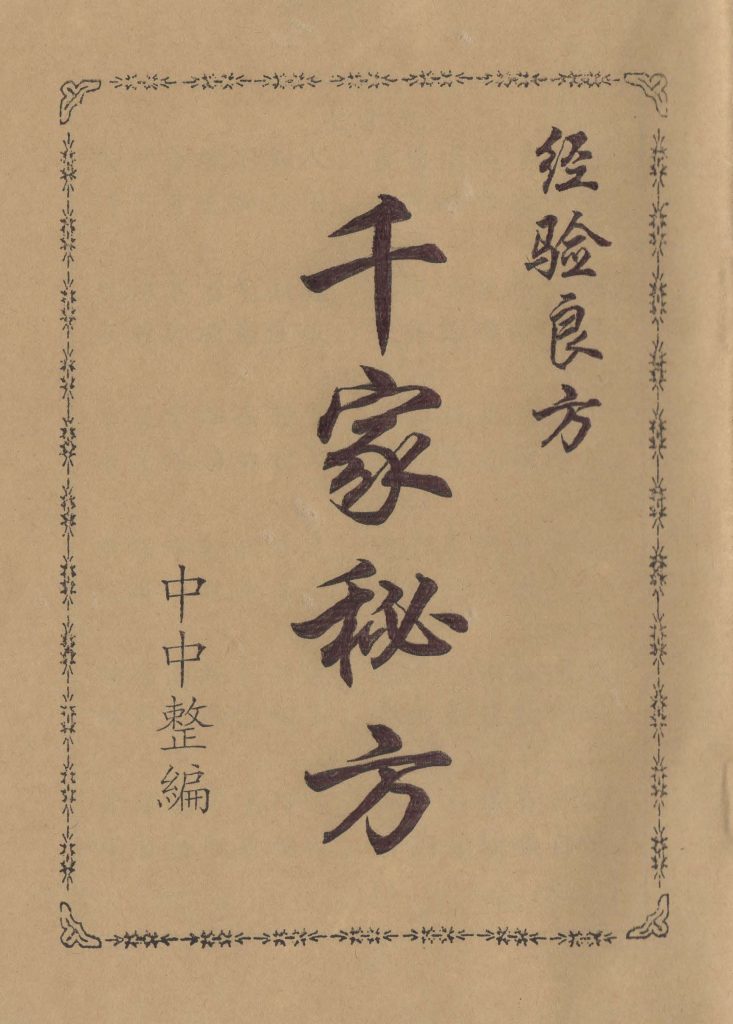 经验良方
千家秘方
中中整編